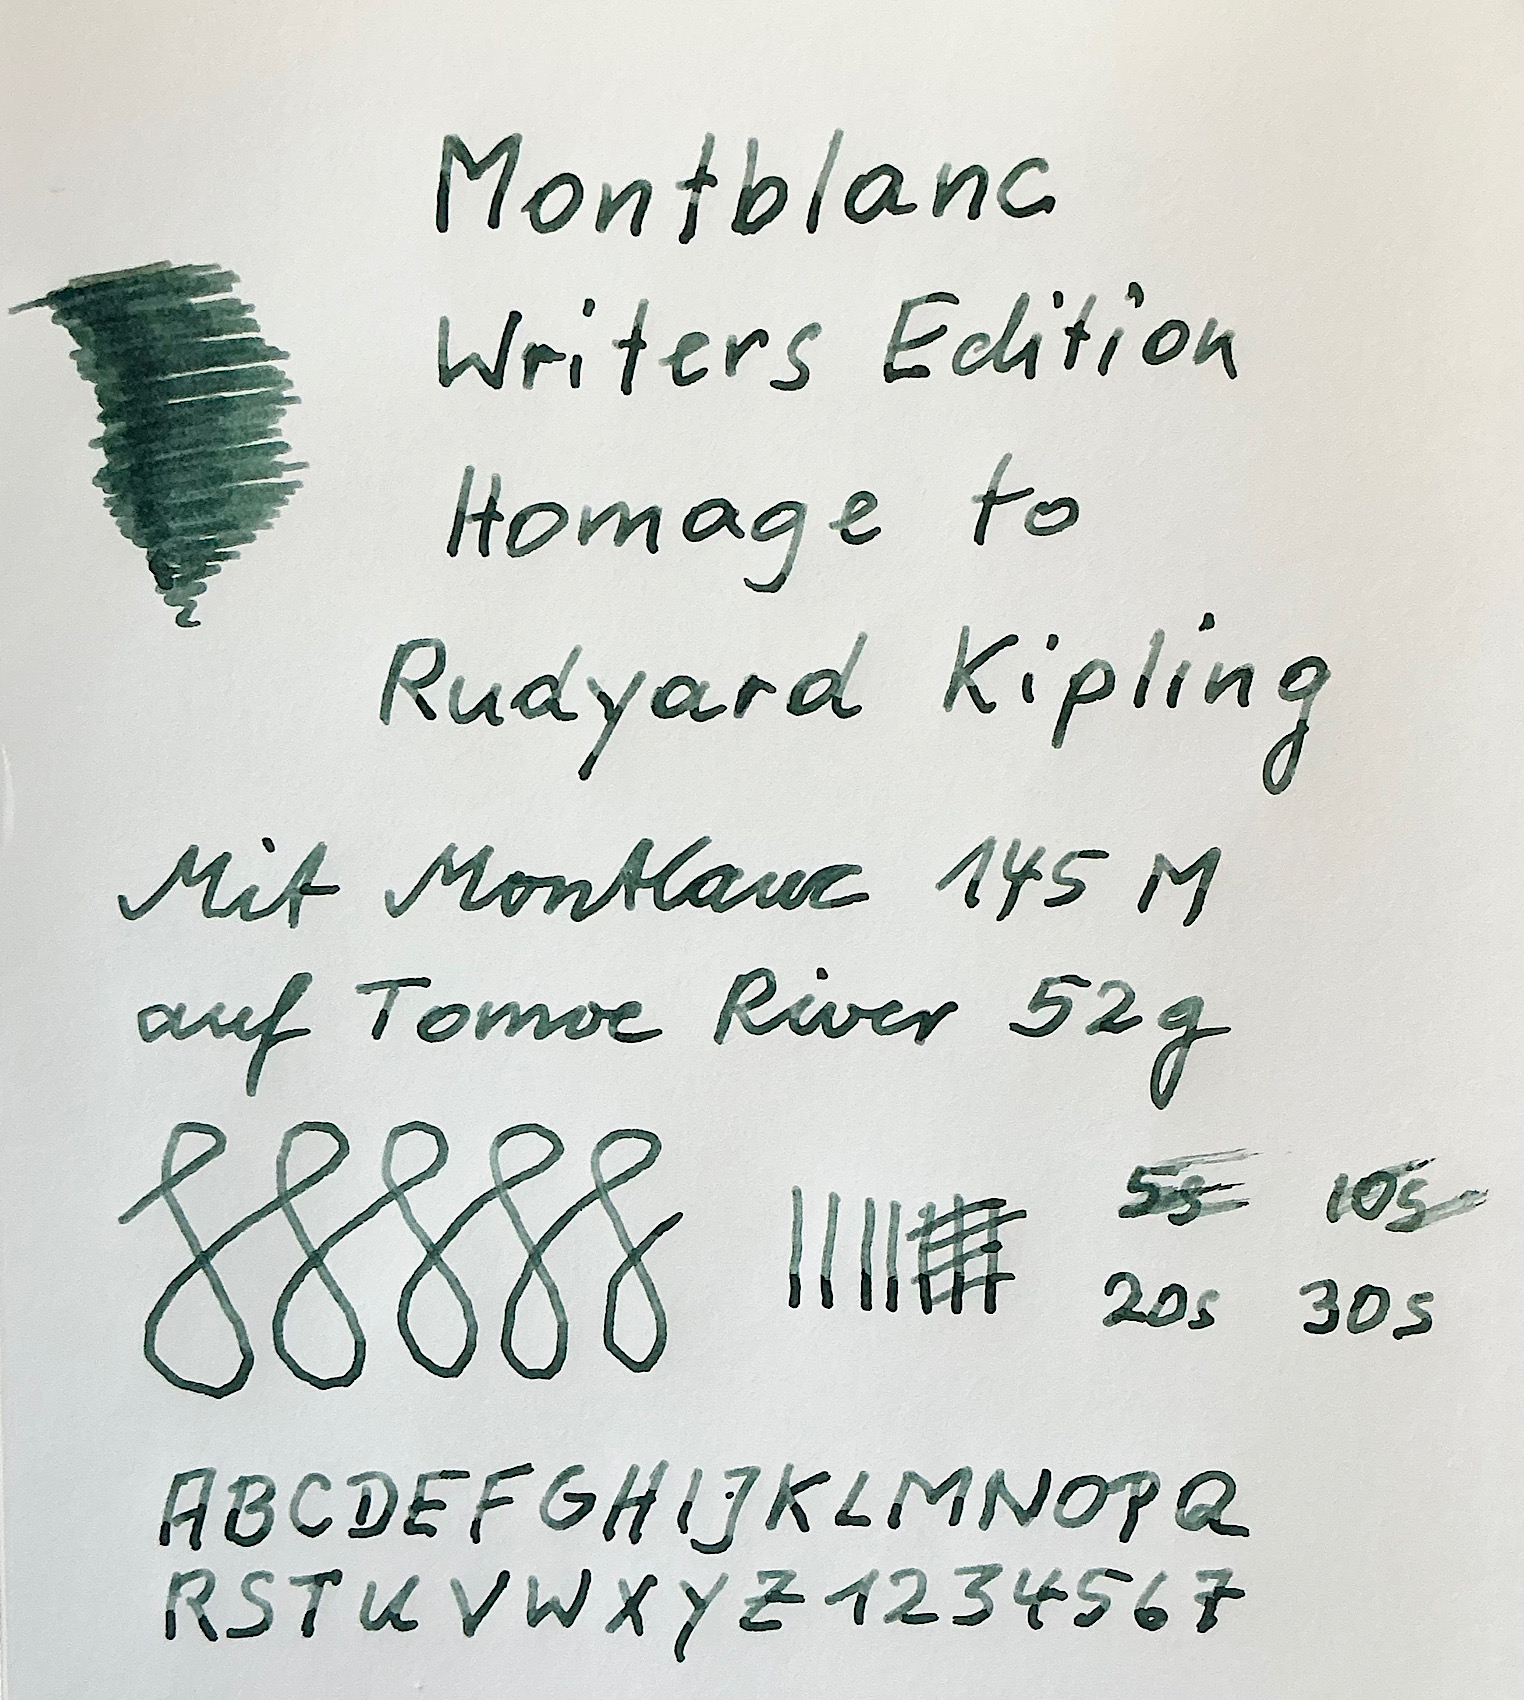 Montblanc
Writers Edition
Homage to
Rudyard Kipling
Mit Montblanc 145 M
auf Tomoe River 52g
5s 10s
20s 30s
ABCDEFGHIJKLMNOPQ
RSTUVWXYZ1234567